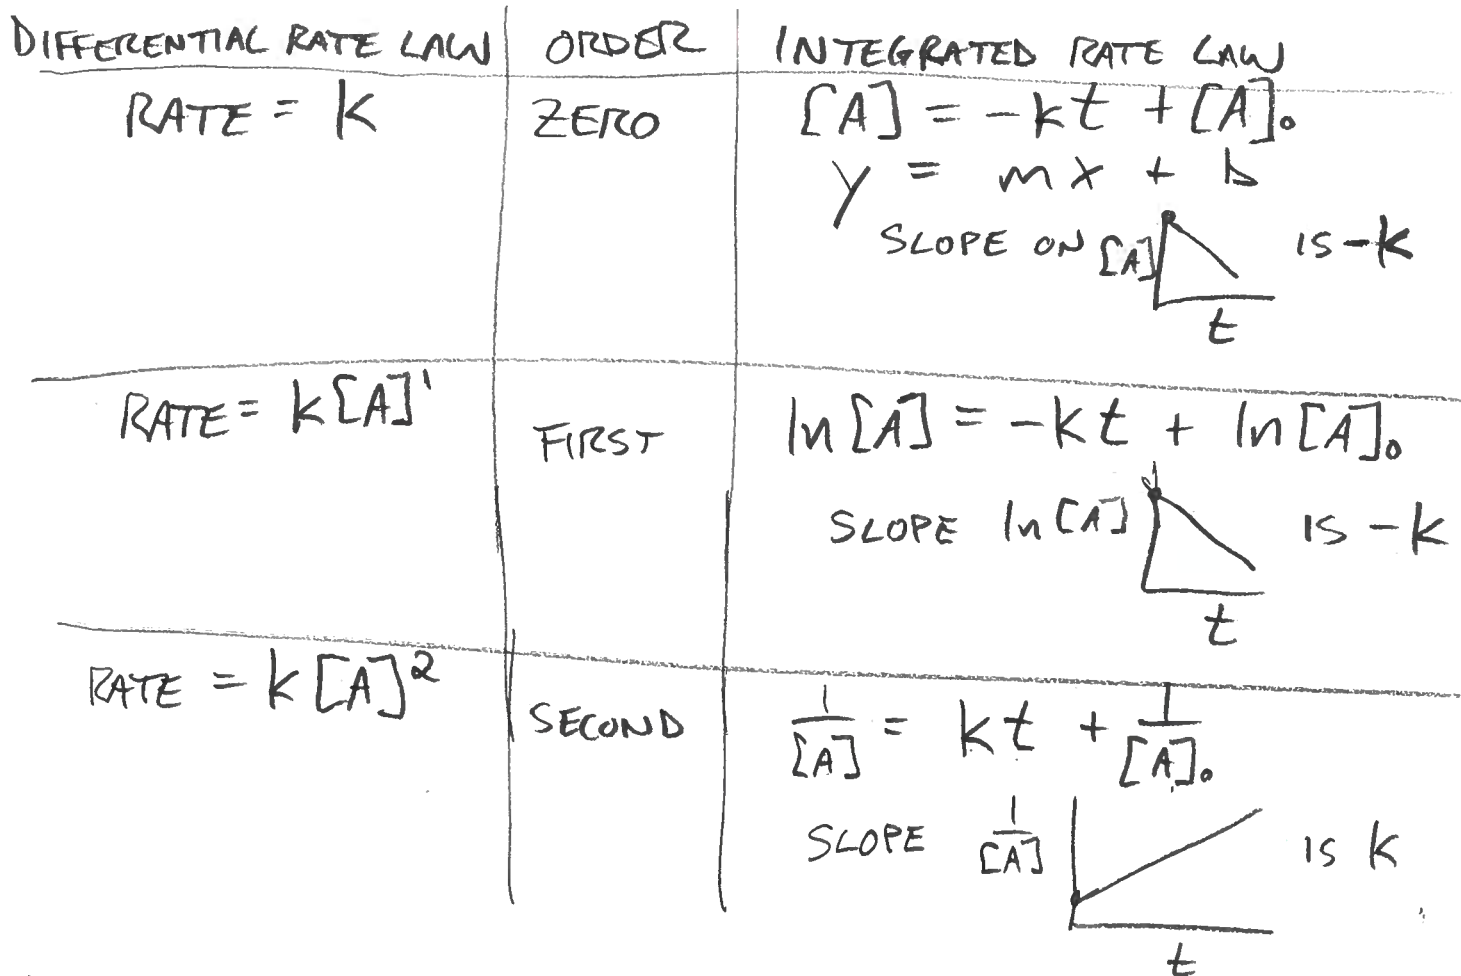 DIFFERENTIAL RATE LAW ORDER INTEGRATED RATE LAW
RATE = k ZERO [A] = -kt + [A]₀
y = mx + b
SLOPE ON [A] IS -k
t
RATE = k[A]¹ FIRST ln[A] = -kt + ln[A]₀
SLOPE ln[A] IS -k
t
RATE = k[A]² SECOND 1/[A] = kt + 1/[A]₀
SLOPE 1/[A] IS k
t